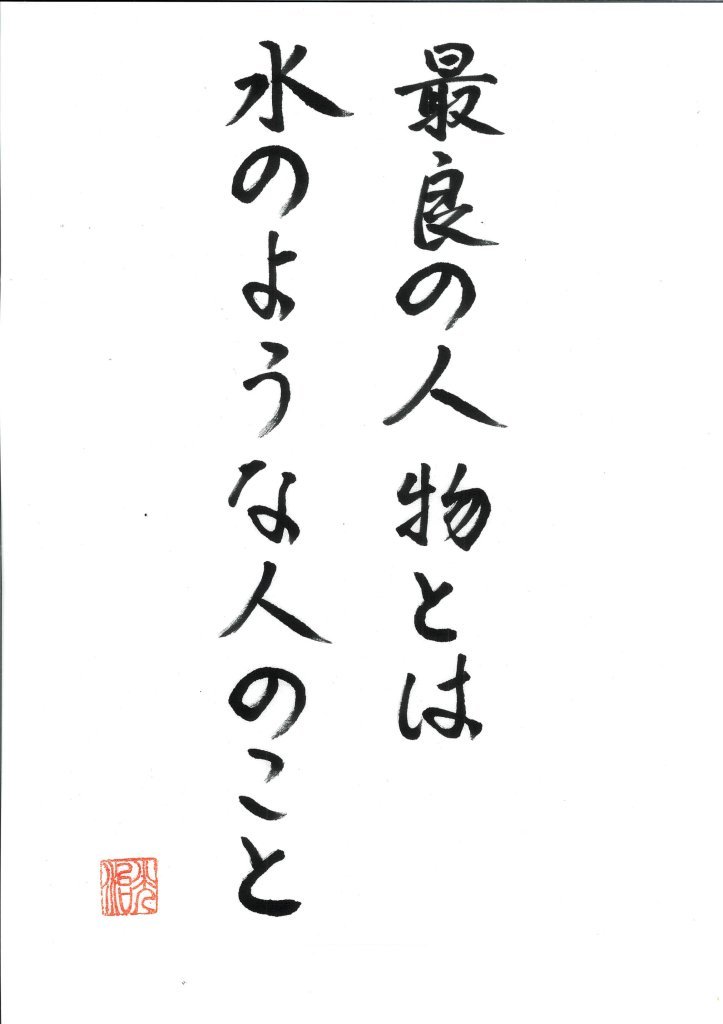 最良の人物とは
水のような人のこと